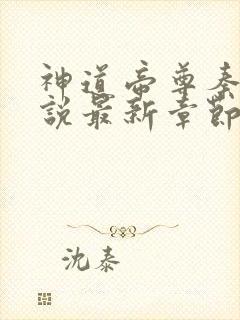 神道帝尊秦
說最新章節
沈泰